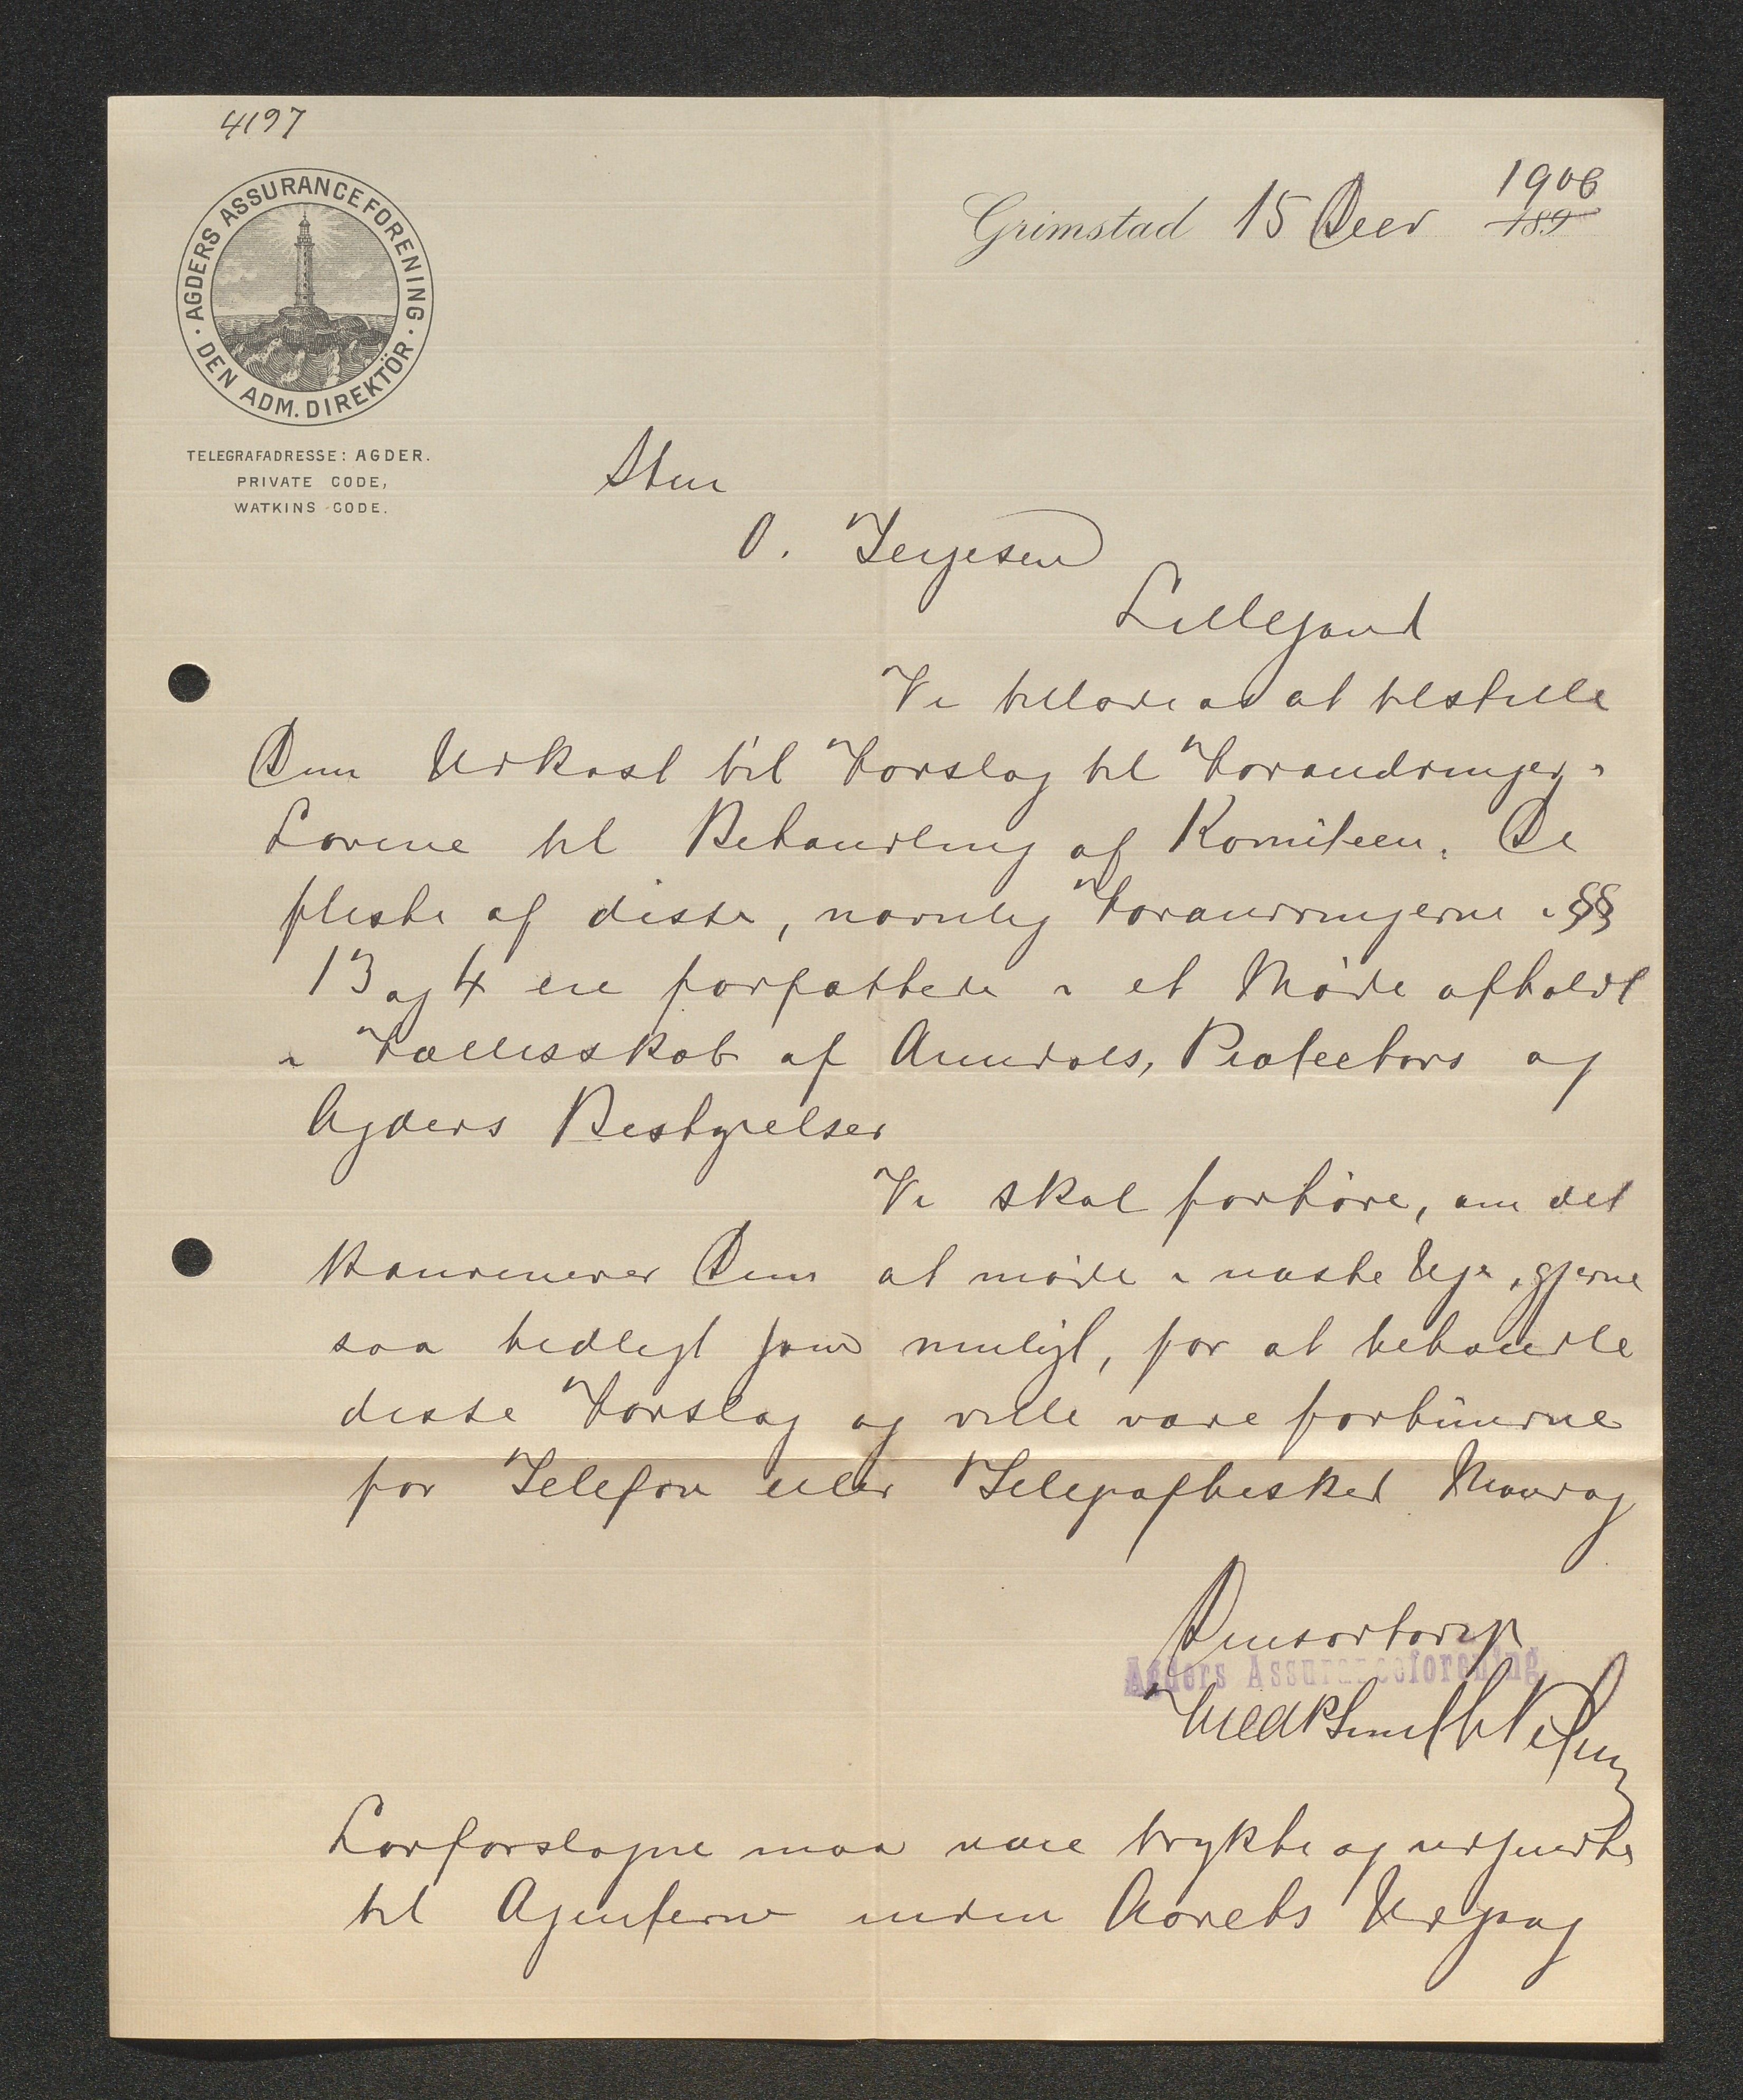 4197
AGDERS ASSURANCEFORENING
DEN ADM. DIREKTÖR
TELEGRAFADRESSE: AGDER.
PRIVATE CODE,
WATKINS CODE.
Grimstad 15 Decr 1906
189
Herr
O. Terjesen
Lillesand
Vi tillade os at tilstille
Dem Udkast til Forslag til Forandringer i
Lovene til Behandling af Komiteen. De
fleste af disse, navnlig Forandringerne i §§
13 og 4 ere forfattede i et Møde afholdt
i Fællesskab af Arendals, Protectors og
Agders Bestyrelser
Vi skal forhøre, om det
konvenerer Dem at møde i næste Uge, gjerne
saa tidligt som muligt, for at behandle
disse Forslag og ville være forbundne
for Telefon eller Telegrafbesked Mandag
Deres ærbødigst
Agders Assuranceforening
Lovforslagene maa være trykte og udsendte
til Agenterne inden Aarets Udgang